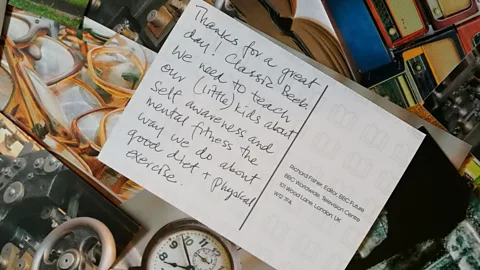 Thanks for a great
day! Classic Beeb.
We need to teach
our (little) kids about
self awareness and
mental fitness the
way we do about
good diet + physical
exercise.
Richard Fisher, Editor, BBC Future
BBC Worldwide, Television Centre
101 Wood Lane, London, UK
W12 7FA